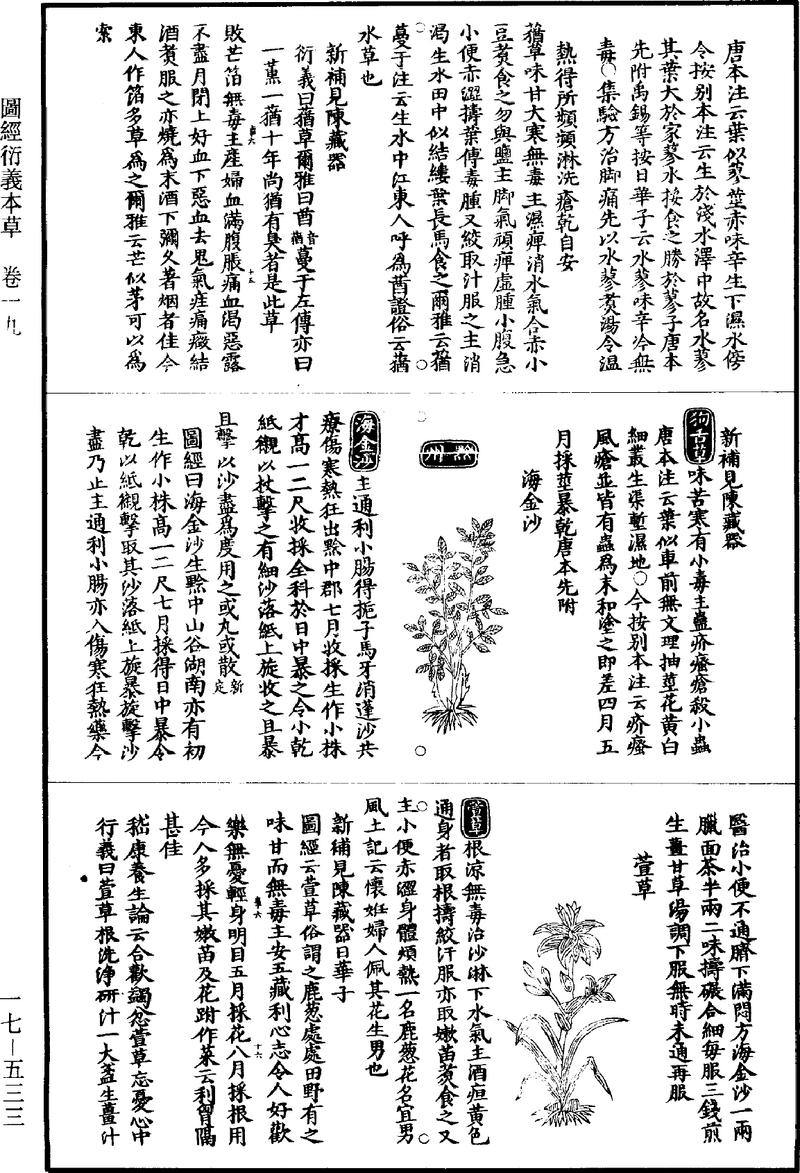 圖經衍義本草　卷一九
唐本注云葉似蓼莖赤味辛生下濕水傍
令按别本注云生於淺水澤中故名水蓼
其葉大於家蓼水挼食之勝於蓼子唐本
先附禹錫等按日華子云水蓼味辛冷無
毒○集驗方治脚痛先以水蓼煑湯令温
熱得所頻頻淋洗瘡乾自安
蕕草味甘大寒無毒主濕痺消水氣合赤小
豆煑食之勿與鹽主脚氣頑痺虚腫小腹急
小便赤澀擣葉傅毒腫又絞取汁服之主消
渴生水田中似結縷葉長馬食之爾雅云蕕
蔓于注云生水中江東人呼為茜證俗云蕕
水草也
新補見陳藏器
衍義曰蕕草爾雅曰茜音酋蔓于左傳亦曰
一薰一蕕十年尚猶有臭者是此草
敗芒箔無毒主產婦血滿腹脹痛血渴惡露
不盡月閉上好血下惡血去鬼氣疰痛癥結
酒煑服之亦燒為末酒下彌久著烟者佳今
東人作箔多草為之爾雅云芒似茅可以為
索
新補見陳藏器
狗舌草味苦寒有小毒主蠱疥瘙瘡殺小蟲
唐本注云葉似車前無文理抽莖花黄白
細叢生渠塹濕地○今按别本注云疥瘙
風瘡並皆有蟲為末和塗之即差四月五
月採莖暴乾唐本先附
海金沙
黔州
海金沙主通利小腸得梔子馬牙消蓬沙共
療傷寒熱狂出黔中郡七月收採生作小株
才高一二尺收採全科於日中暴之令小乾
紙襯以杖擊之有細沙落紙上旋收之且暴
且擊以沙盡為度用之或丸或散新定
圖經曰海金沙生黔中山谷湖南亦有初
生作小株高一二尺七月採得日中暴令
乾以紙襯擊取其沙落紙上旋暴旋擊沙
盡乃止主通利小腸亦入傷寒狂熱藥今
醫治小便不通臍下滿悶方海金沙一兩
臘面茶半兩二味擣碾合細每服三錢煎
生薑甘草湯調下服無時未通再服
萱草
萱草根涼無毒治沙淋下水氣主酒疸黄色
通身者取根擣絞汁服亦取嫩苗煑食之又
主小便赤澀身體煩熱一名鹿葱花名宜男
風土記云懷姙婦人佩其花生男也
新補見陳藏器日華子
圖經云萱草俗謂之鹿葱處處田野有之
味甘而無毒主安五藏利心志令人好歡
樂無憂輕身明目五月採花八月採根用
今人多採其嫩苗及花跗作菜云利胷膈
甚佳
嵇康養生論云合歡蠲忿萱草忘憂心中
衍義曰萱草根洗淨研汁一大盞生薑汁
一七—五三三